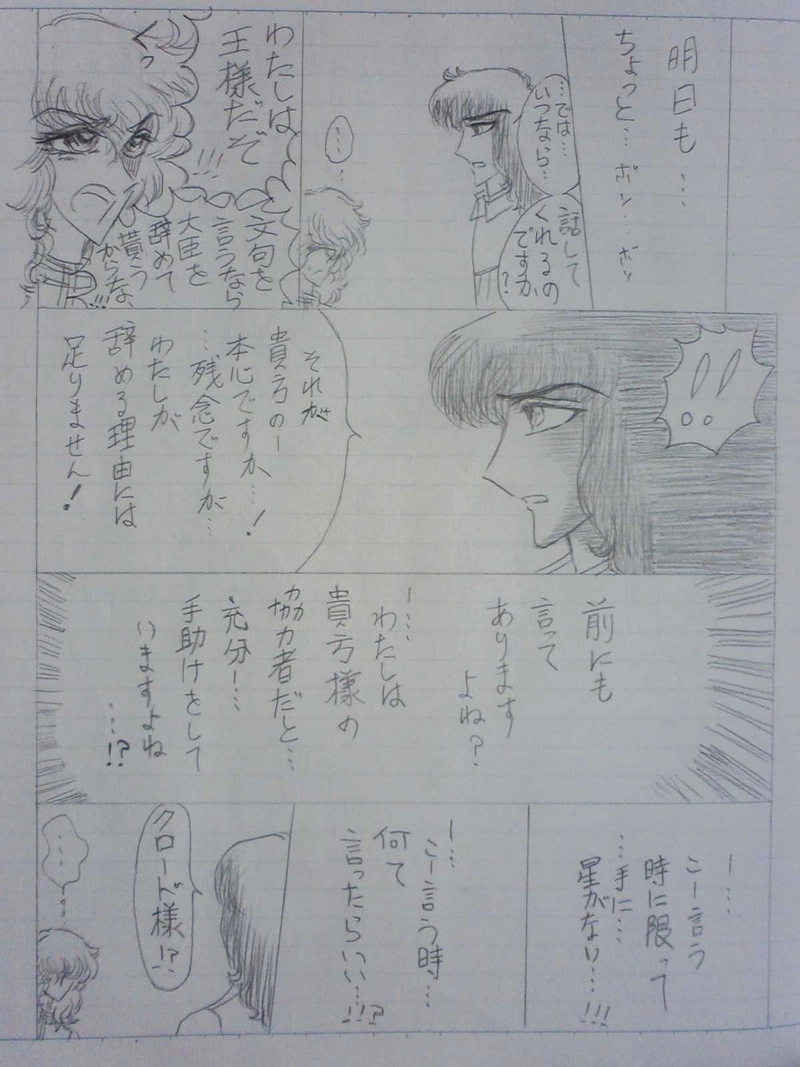 明日も…
ちょっと…ポン…ポン
…では…
いつなら…
話して
くれるの
ですか
?
…
わたしは
王様だぞ
!!!
くっ
文句を
言うなら
大臣を
辞めて
貰う
からな
!!!
!!
それが
貴方のー
本心ですか…!
…残念ですが…
わたしが
辞める理由には
足りません!
前にも
言って
あります
よね?
ー…
わたしは
貴方様の
協力者だと…
充分ー…
手助けをして
いますよね
…!?
ー…
こー言う
時に限って
…手に…
星がない…!!!
ー…
こー言う時…
何て
言ったらいい…!!?
クロード様!?
…